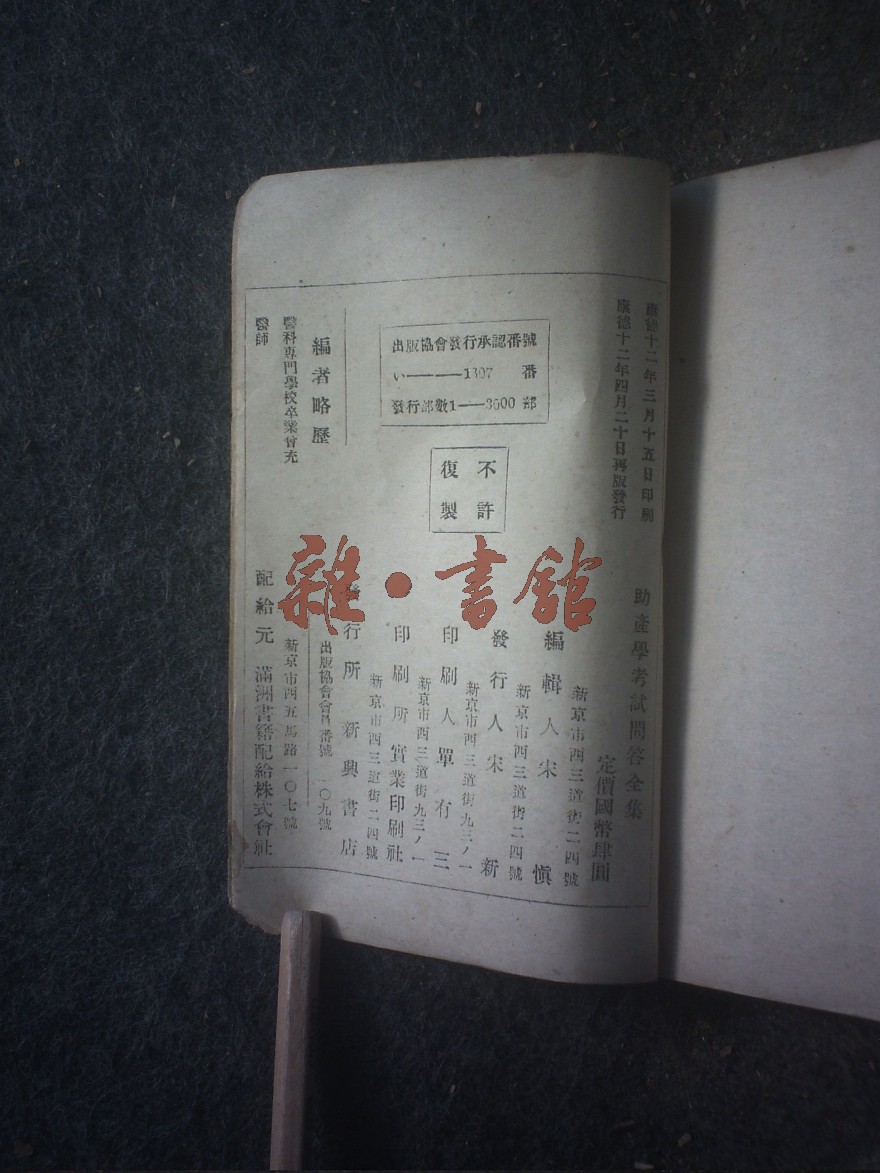 康德十二年三月十五日印刷
康德十二年四月二十日再版發行
助產學考試問答全集
定價國幣肆圓
新京市西三道街二四號
編輯人宋慎
新京市西三道街二四號
發行人宋新
新京市西三道街九三ノ一
印刷人單有三
新京市西三道街九三ノ一
印刷所實業印刷社
新京市西三道街二四號
發行所新興書店
出版協會會員番號一〇九號
新京市西五馬路一〇七號
配給元滿洲書籍配給株式會社
出版協會發行承認番號
い———1307番
發行部數1——3000部
不許
復製
編者略歷
醫科專門學校卒業曾充
醫師
雜·書館